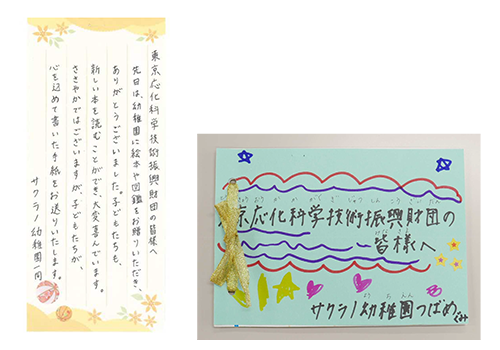 東京応化科学技術振興財団の皆様へ
先日は、幼稚園に絵本や図鑑をお贈りいただき、
ありがとうございました。子どもたちも、
新しい本を読むことができ、大変喜んでいます。
ささやかではございますが、子どもたちが、
心を込めて書いた手紙をお送りいたします。
サクラノ幼稚園一同
京応化科学技術振興財団の
皆様へ
サクラノ幼稚園つばめぐみ